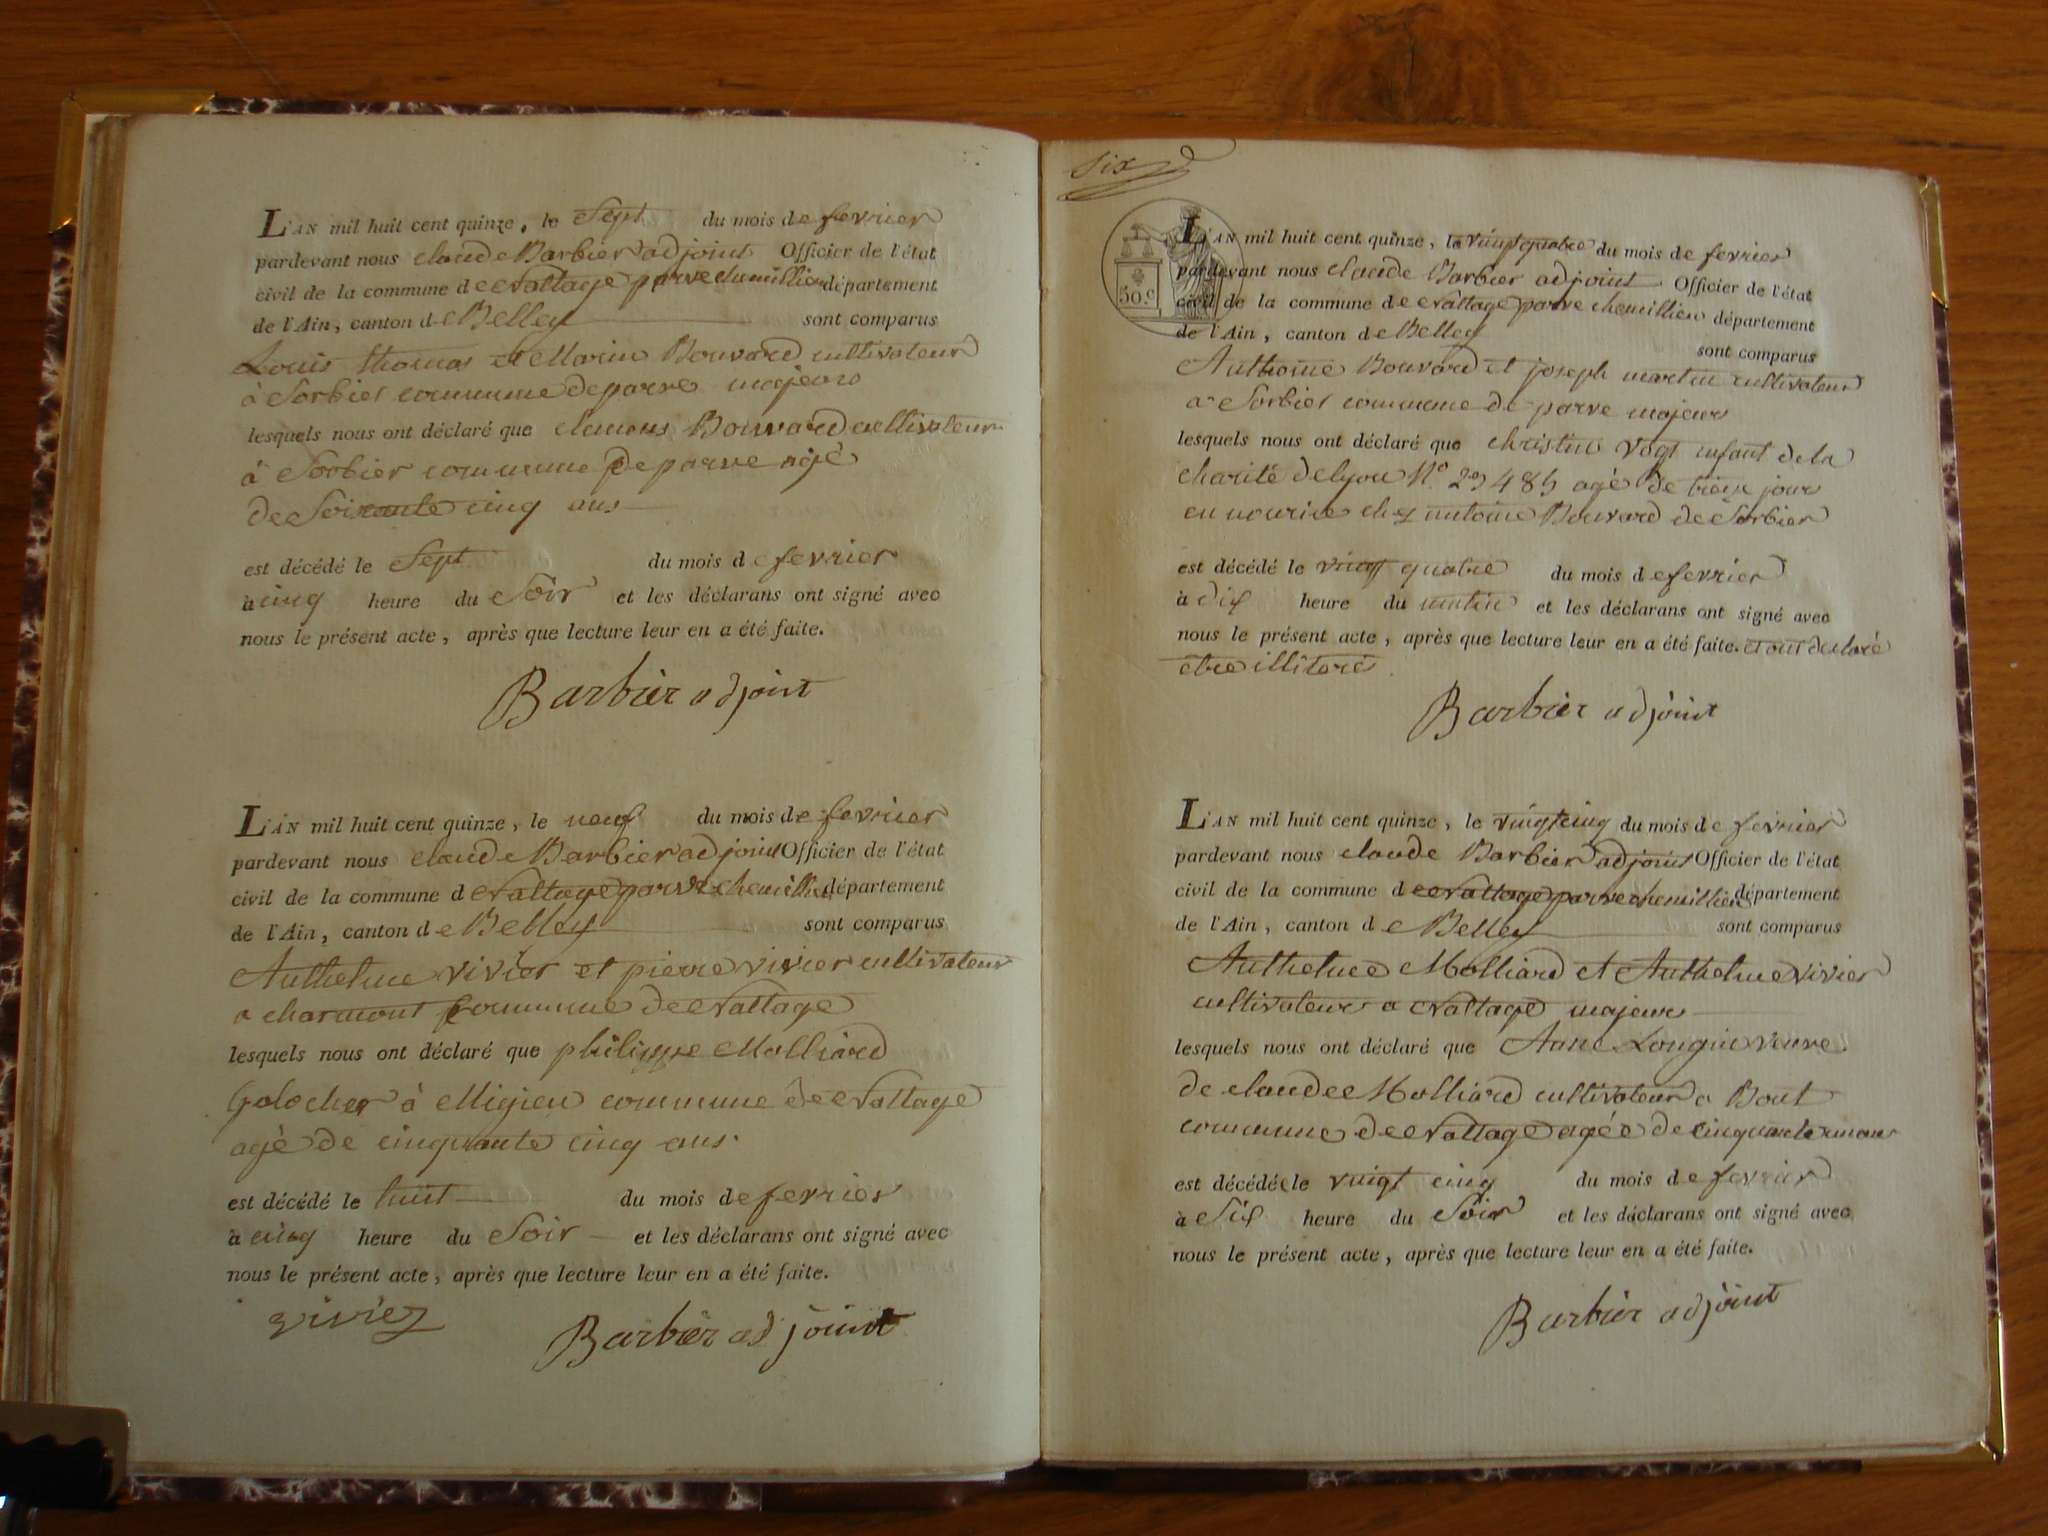 L'AN mil huit cent quinze, le Sept du mois de fevrier
pardevant nous claude Barbier adjoint Officier de l'état
civil de la commune de parve chemillieu département
de l'Ain, canton de Belley sont comparus
Louis thomas et Marin Bouvard cultivateur
à Sorbier commune de parve majeurs
lesquels nous ont déclaré que Bouvard cultivateur
à Sorbier commune de parve agé
de Soixante cinq ans
est décédé le Sept du mois de fevrier
à cinq heure du Soir et les déclarans ont signé avec
nous le présent acte, après que lecture leur en a été faite.
Barbier adjoint
L'AN mil huit cent quinze, le neuf du mois de fevrier
pardevant nous claude Barbier adjoint Officier de l'état
civil de la commune de Nattage parve chemillieu département
de l'Ain, canton de Belley sont comparus
Anthelme vivier et pierre vivier cultivateur
a charmont commune de Nattage
lesquels nous ont déclaré que philippe Molliard
Galocher à Migieu commune de Nattage
agé de cinquante cinq ans.
est décédé le huit du mois de fevrier
à cinq heure du Soir et les déclarans ont signé avec
nous le présent acte, après que lecture leur en a été faite.
vivier
Barbier adjoint
Six
50.c
L'AN mil huit cent quinze, le vingt quatre du mois de fevrier
pardevant nous claude Barbier adjoint Officier de l'état
civil de la commune de Nattage parve chemillieu département
de l'Ain, canton de Belley
sont comparus
Anthoine Bouvard et joseph martin cultivateur
a Sorbier commune de parve majeurs
lesquels nous ont déclaré que christine Vogt enfant de la
charité de lyon N.o 29485 agé de treize jours
en nourice chez antoine Bouvard de Sorbier
est décédé le vingt quatre du mois de fevrier
à dix heure du matin et les déclarans ont signé avec
nous le présent acte, après que lecture leur en a été faite. et ont declaré
etre illitoré
Barbier adjoint
L'AN mil huit cent quinze, le vingt cinq du mois de fevrier
pardevant nous claude Barbier adjoint Officier de l'état
civil de la commune de Nattage parve chemillieu département
de l'Ain, canton de Belley sont comparus
Anthelme Molliard et Anthelme vivier
cultivateurs a Nattage majeurs
lesquels nous ont déclaré que Anne Longin veuve
de claude Molliard cultivateur a Bout
commune de Nattage agée de cinquante
est décédée le vingt cinq du mois de fevrier
à Six heure du Soir et les déclarans ont signé avec
nous le présent acte, après que lecture leur en a été faite.
Barbier adjoint